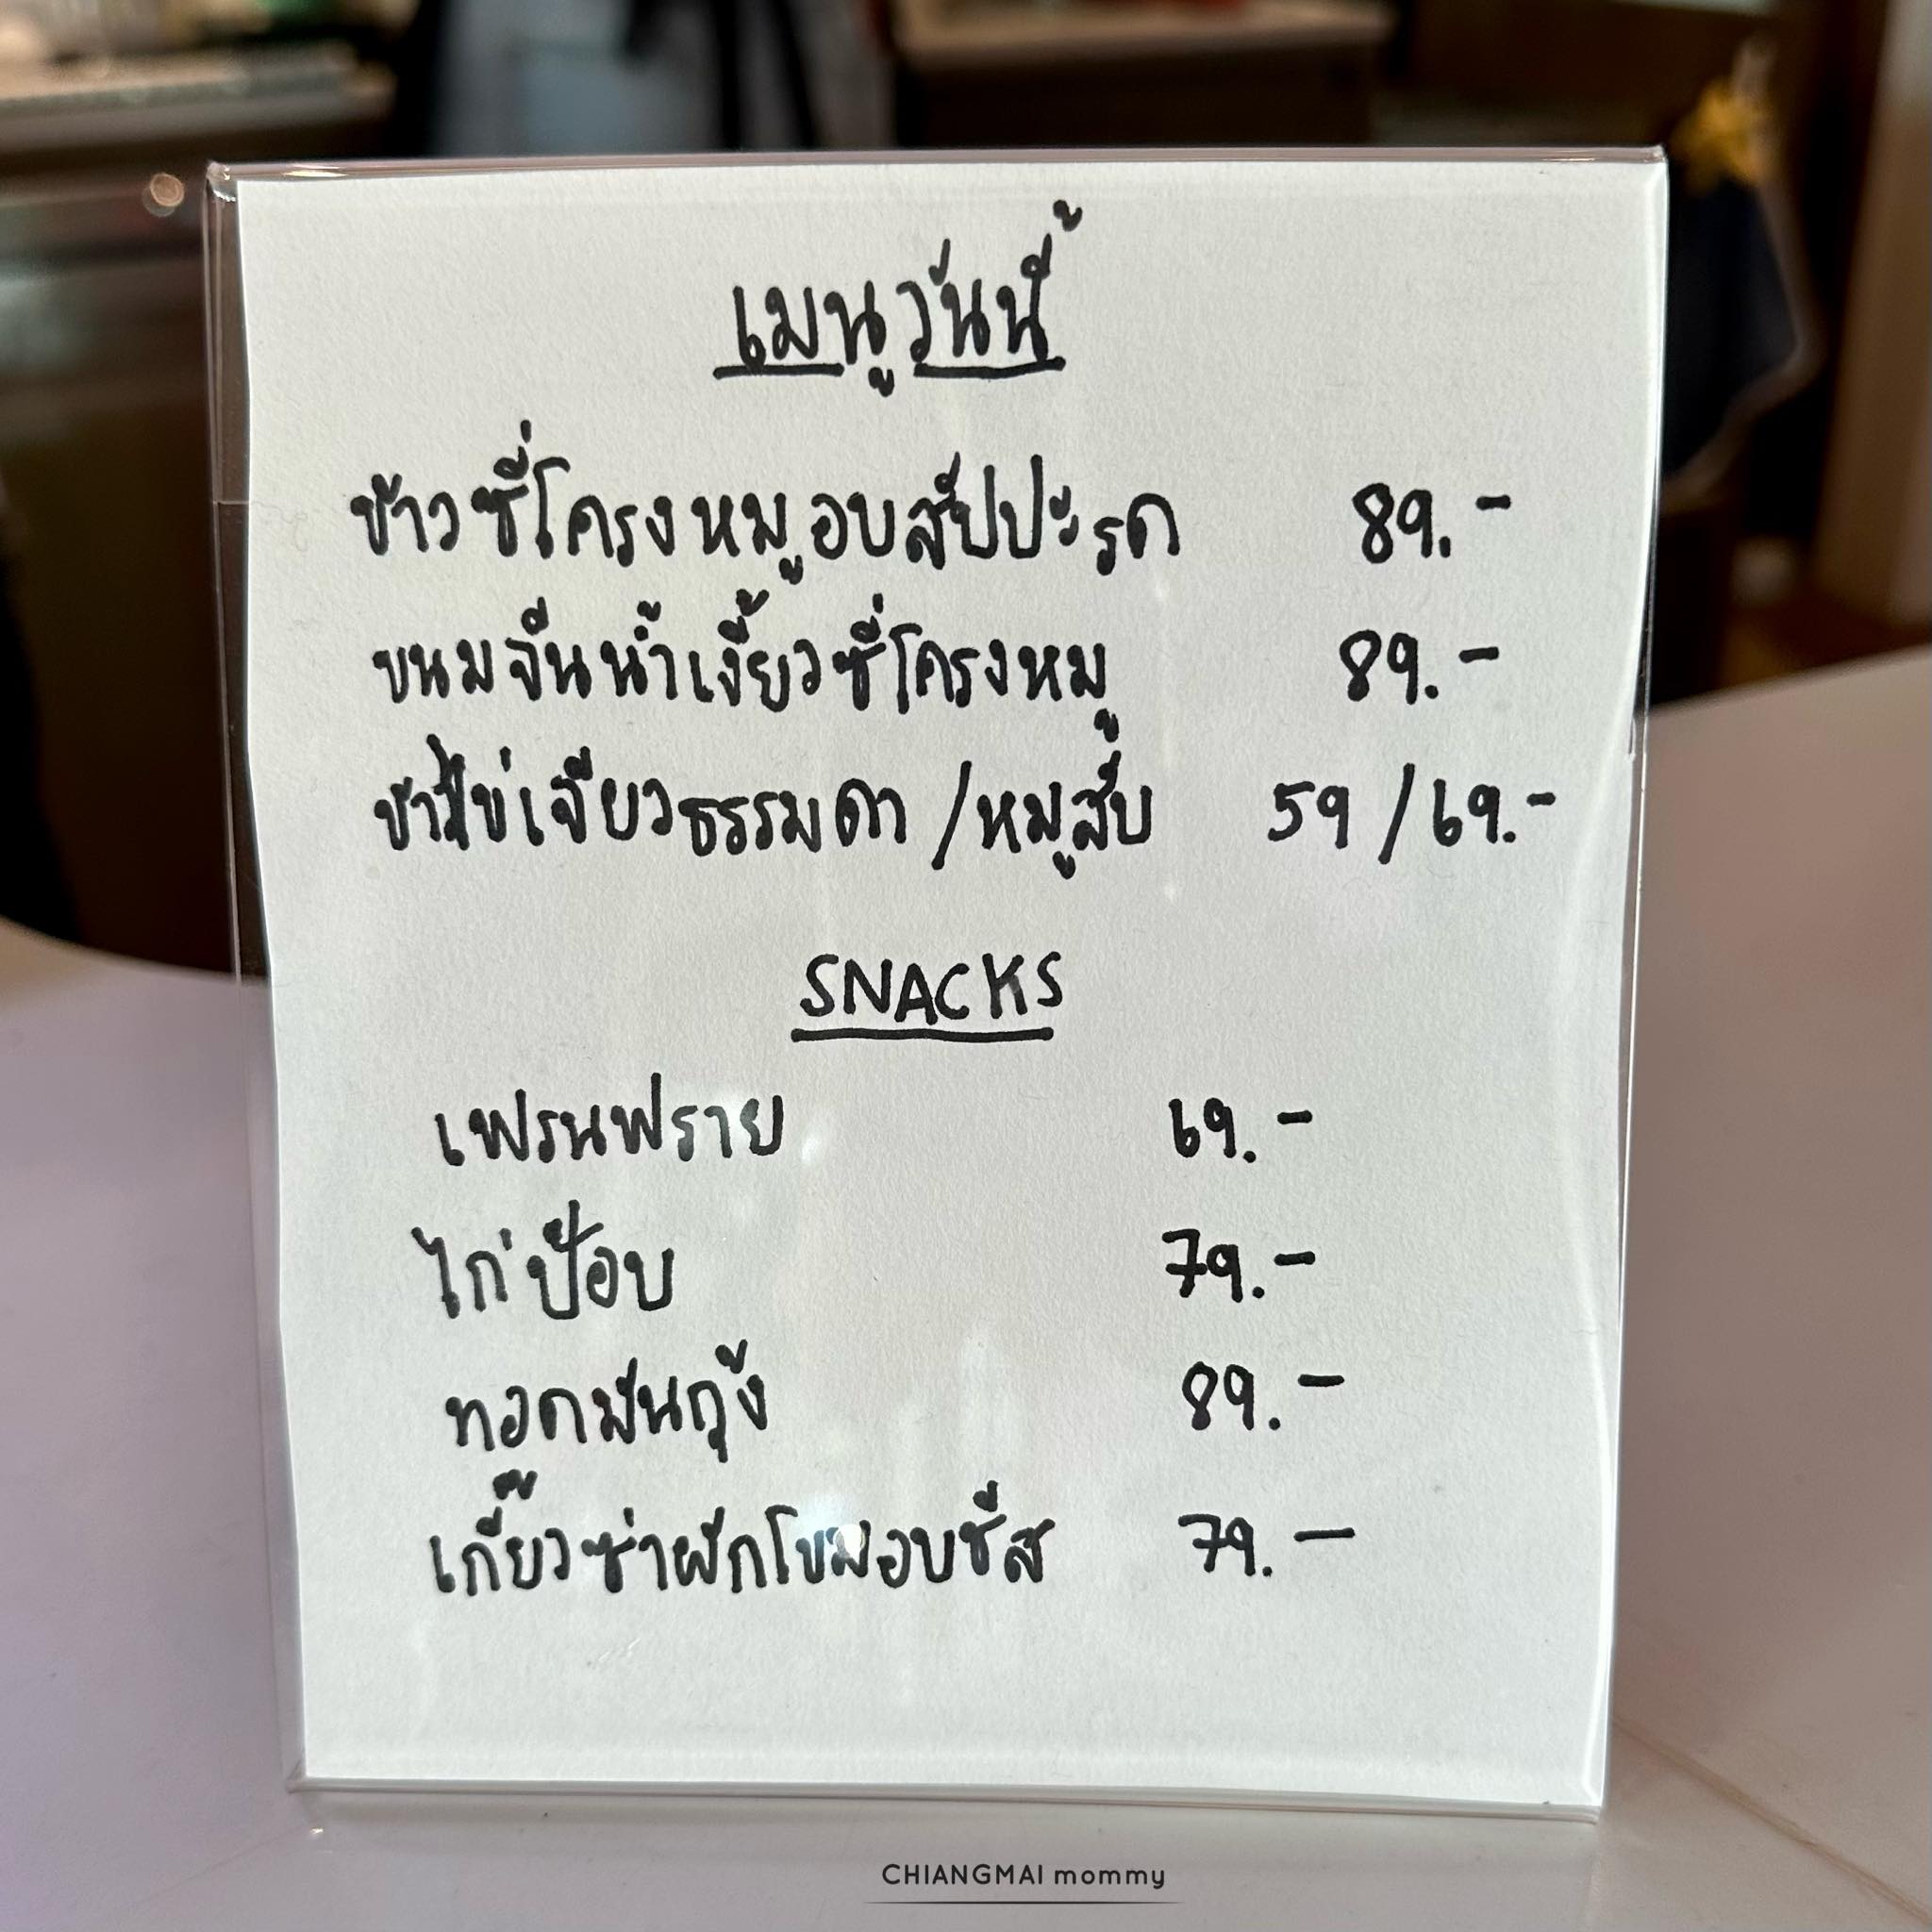 เมนูวันนี้
ข้าวซี่โครงหมูอบสัปปะรด 89.-
ขนมจีนน้ำเงี้ยวซี่โครงหมู 89.-
ข้าวไข่เจียวธรรมดา / หมูสับ 59 / 69.-
SNACKS
เฟรนฟราย 69.-
ไก่ป๊อบ 79.-
ทอดมันกุ้ง 89.-
เกี๊ยวซ่าผักโขมอบชีส 79.-
CHIANGMAI mommy